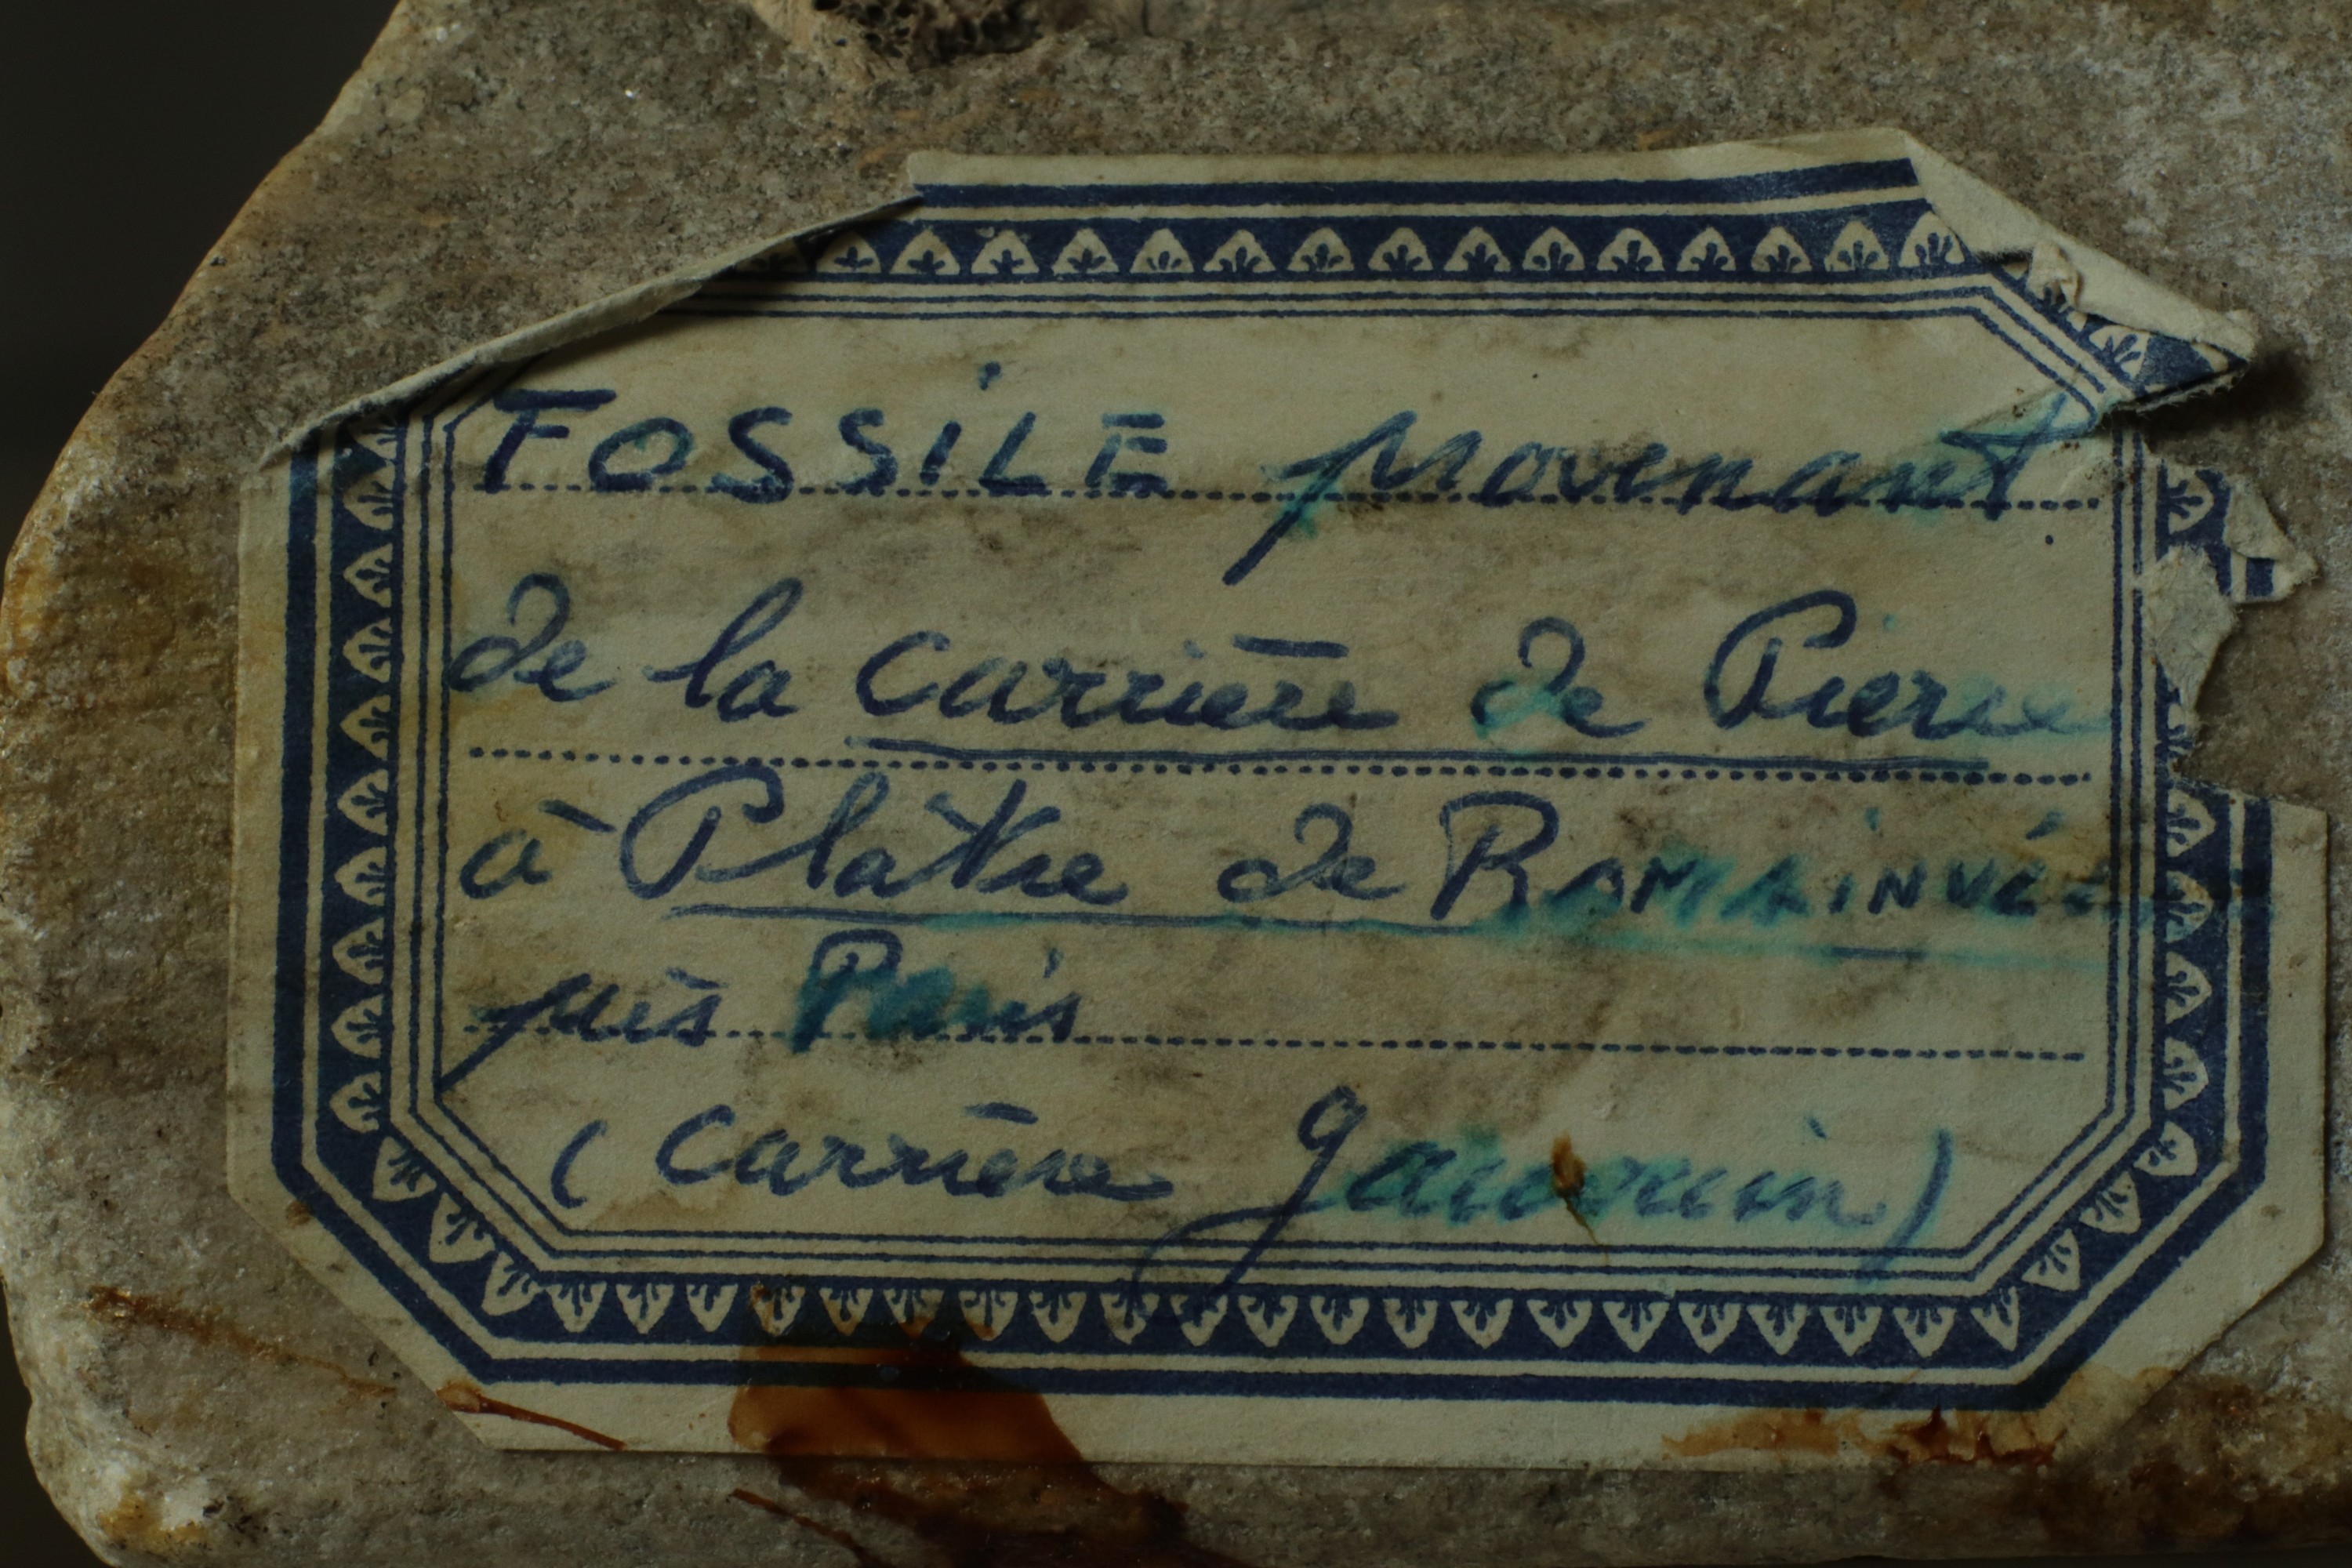 FOSSiLE provenant
de la carrière de Pierre
à Platre de
près Paris
(carrière